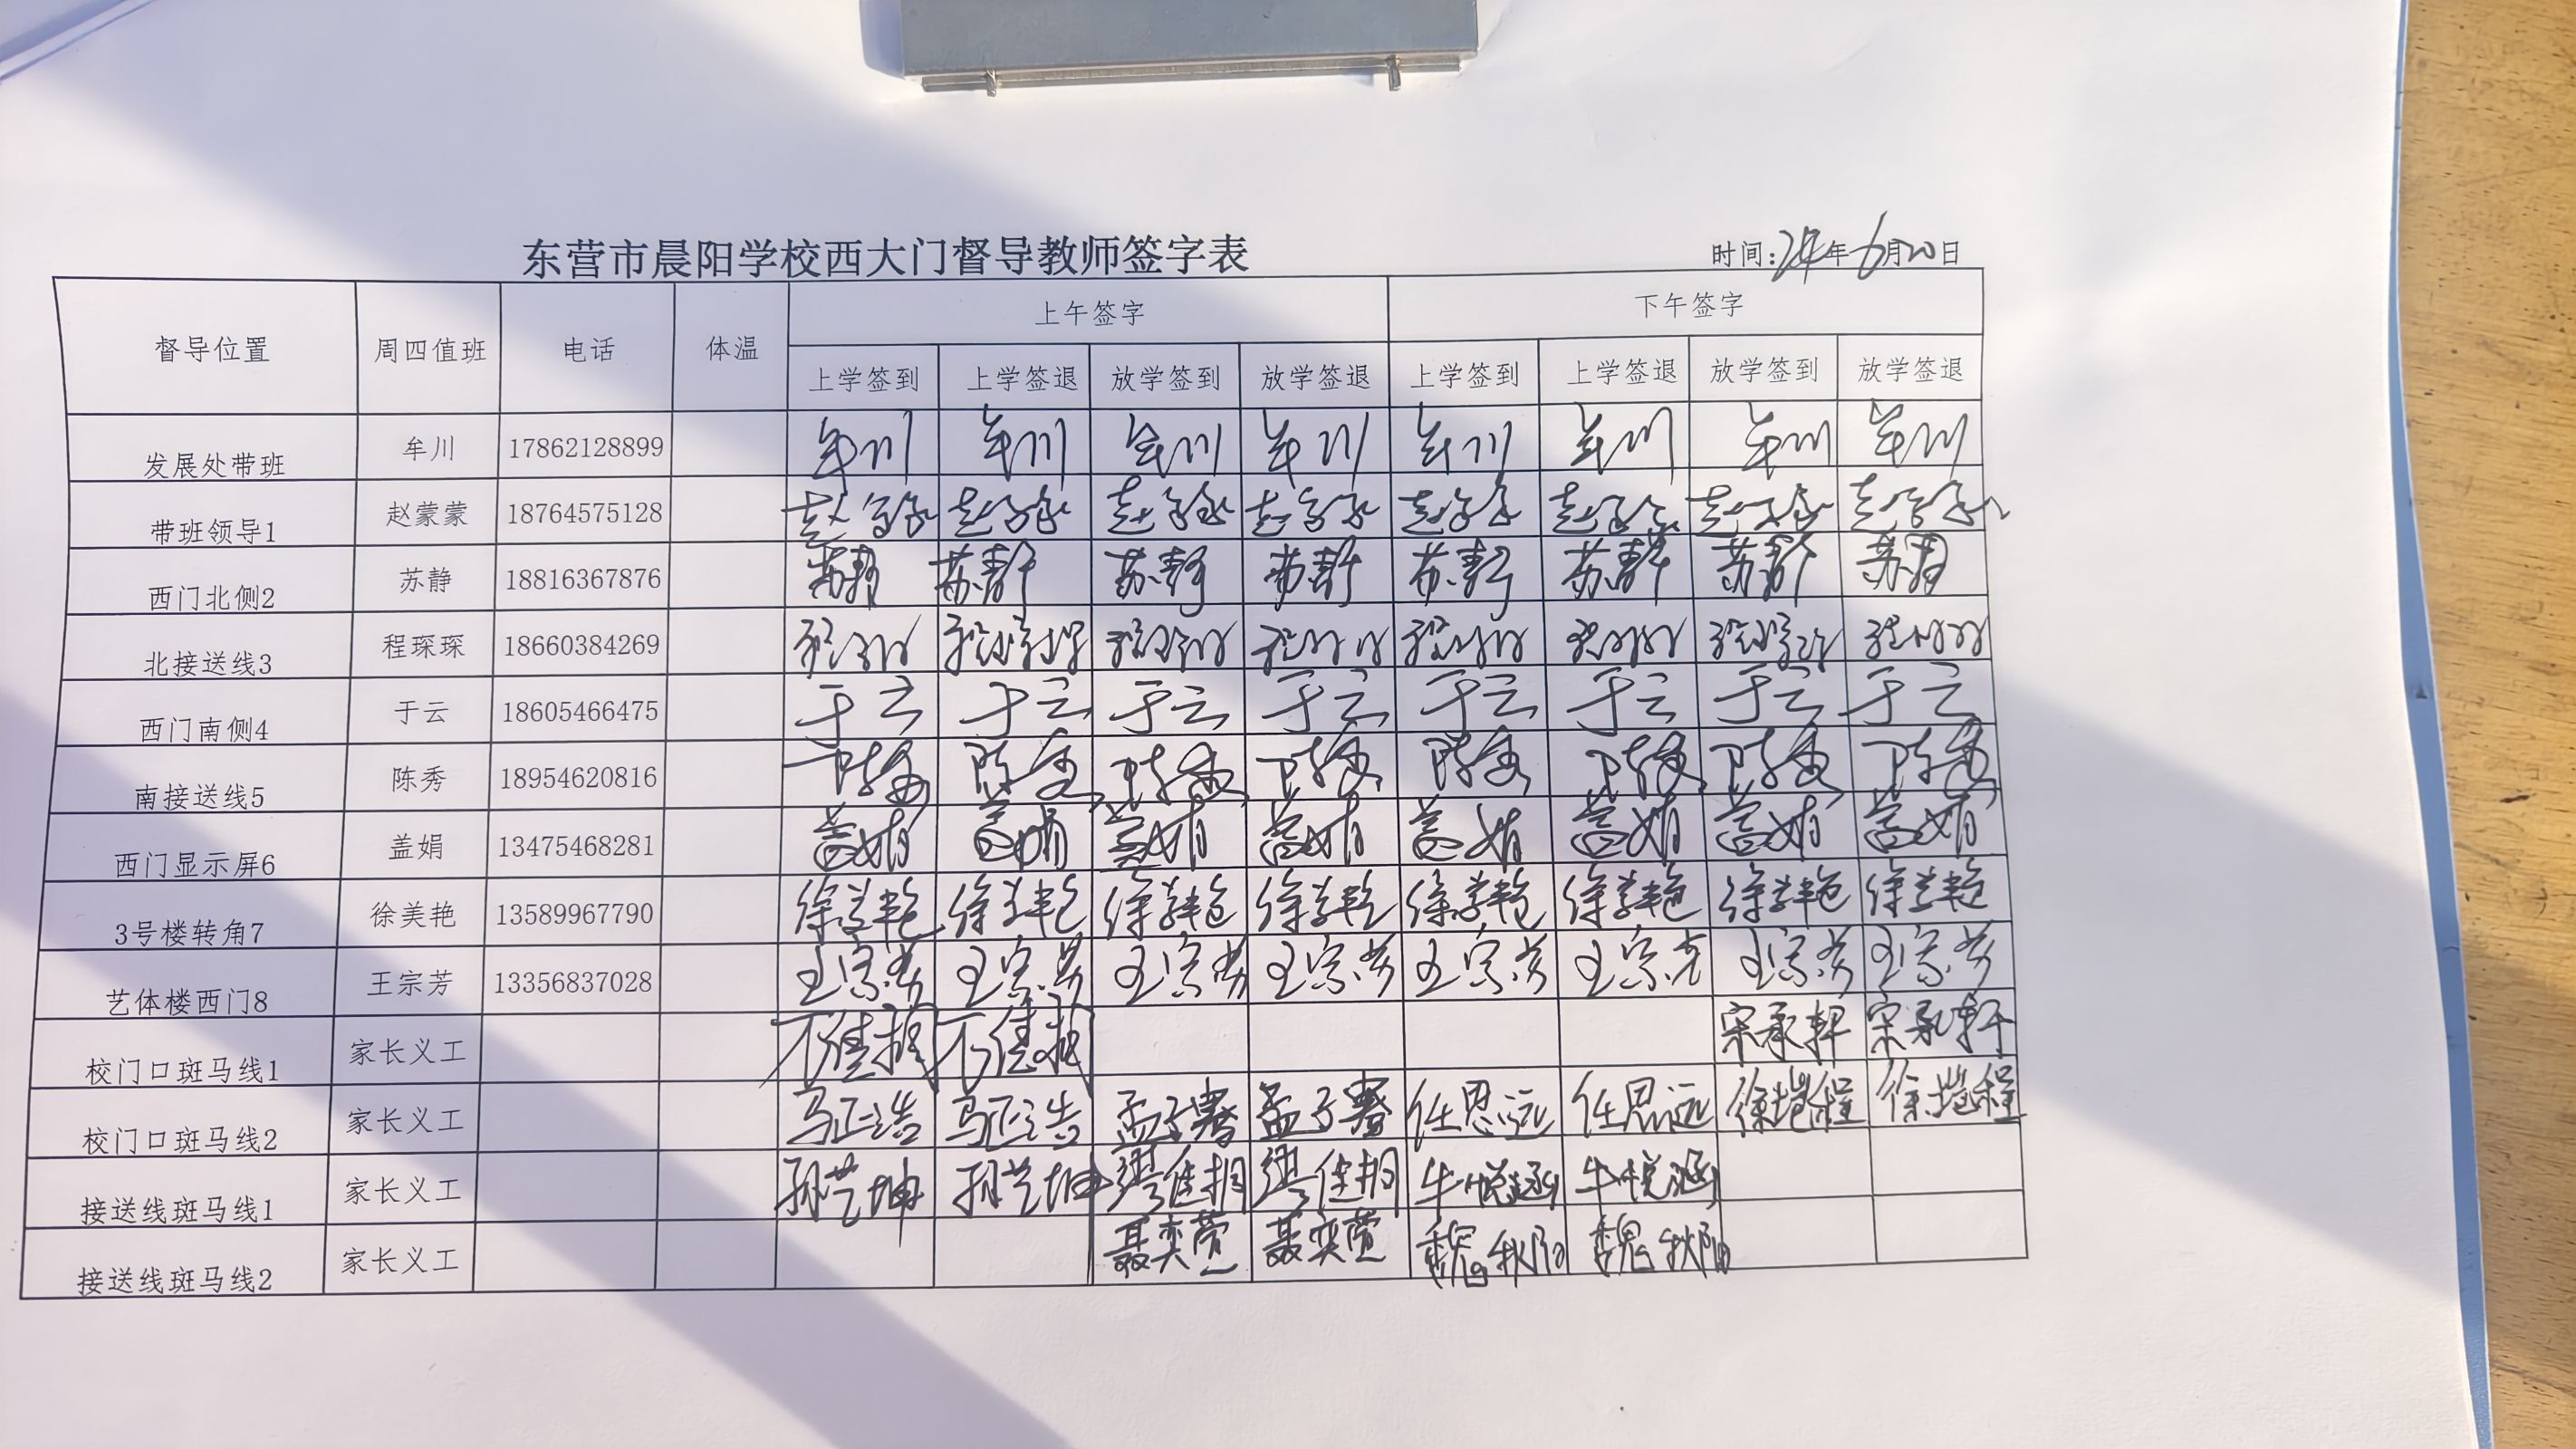 东营市晨阳学校西大门督导教师签字表
时间:24年6月20日
督导位置 周四值班 电话 体温 上午签字 下午签字
上学签到 上学签退 放学签到 放学签退 上学签到 上学签退 放学签到 放学签退
发展处带班 牟川 17862128899 牟川 牟川 牟川 牟川 牟川 牟川 牟川 牟川
带班领导1 赵蒙蒙 18764575128 赵蒙蒙 赵蒙蒙 赵蒙蒙 赵蒙蒙 赵蒙蒙 赵蒙蒙 赵蒙蒙 赵蒙蒙
西门北侧2 苏静 18816367876 苏静 苏静 苏静 苏静 苏静 苏静 苏静 苏静
北接送线3 程琛琛 18660384269 程琛琛 程琛琛 程琛琛 程琛琛 程琛琛 程琛琛 程琛琛 程琛琛
西门南侧4 于云 18605466475 于云 于云 于云 于云 于云 于云 于云 于云
南接送线5 陈秀 18954620816 陈秀 陈秀 陈秀 陈秀 陈秀 陈秀 陈秀 陈秀
西门显示屏6 盖娟 13475468281 盖娟 盖娟 盖娟 盖娟 盖娟 盖娟 盖娟 盖娟
3号楼转角7 徐美艳 13589967790 徐美艳 徐美艳 徐美艳 徐美艳 徐美艳 徐美艳 徐美艳 徐美艳
艺体楼西门8 王宗芳 13356837028 王宗芳 王宗芳 王宗芳 王宗芳 王宗芳 王宗芳 王宗芳 王宗芳
校门口斑马线1 家长义工 宋承轩 宋承轩
校门口斑马线2 家长义工 马正浩 马正浩 孟子骞 孟子骞 任思远 任思远 徐楷程 徐楷程
接送线斑马线1 家长义工 孙艺坤 孙艺坤 牛悦涵 牛悦涵
接送线斑马线2 家长义工 聂奕萱 聂奕萱 魏秋阳 魏秋阳